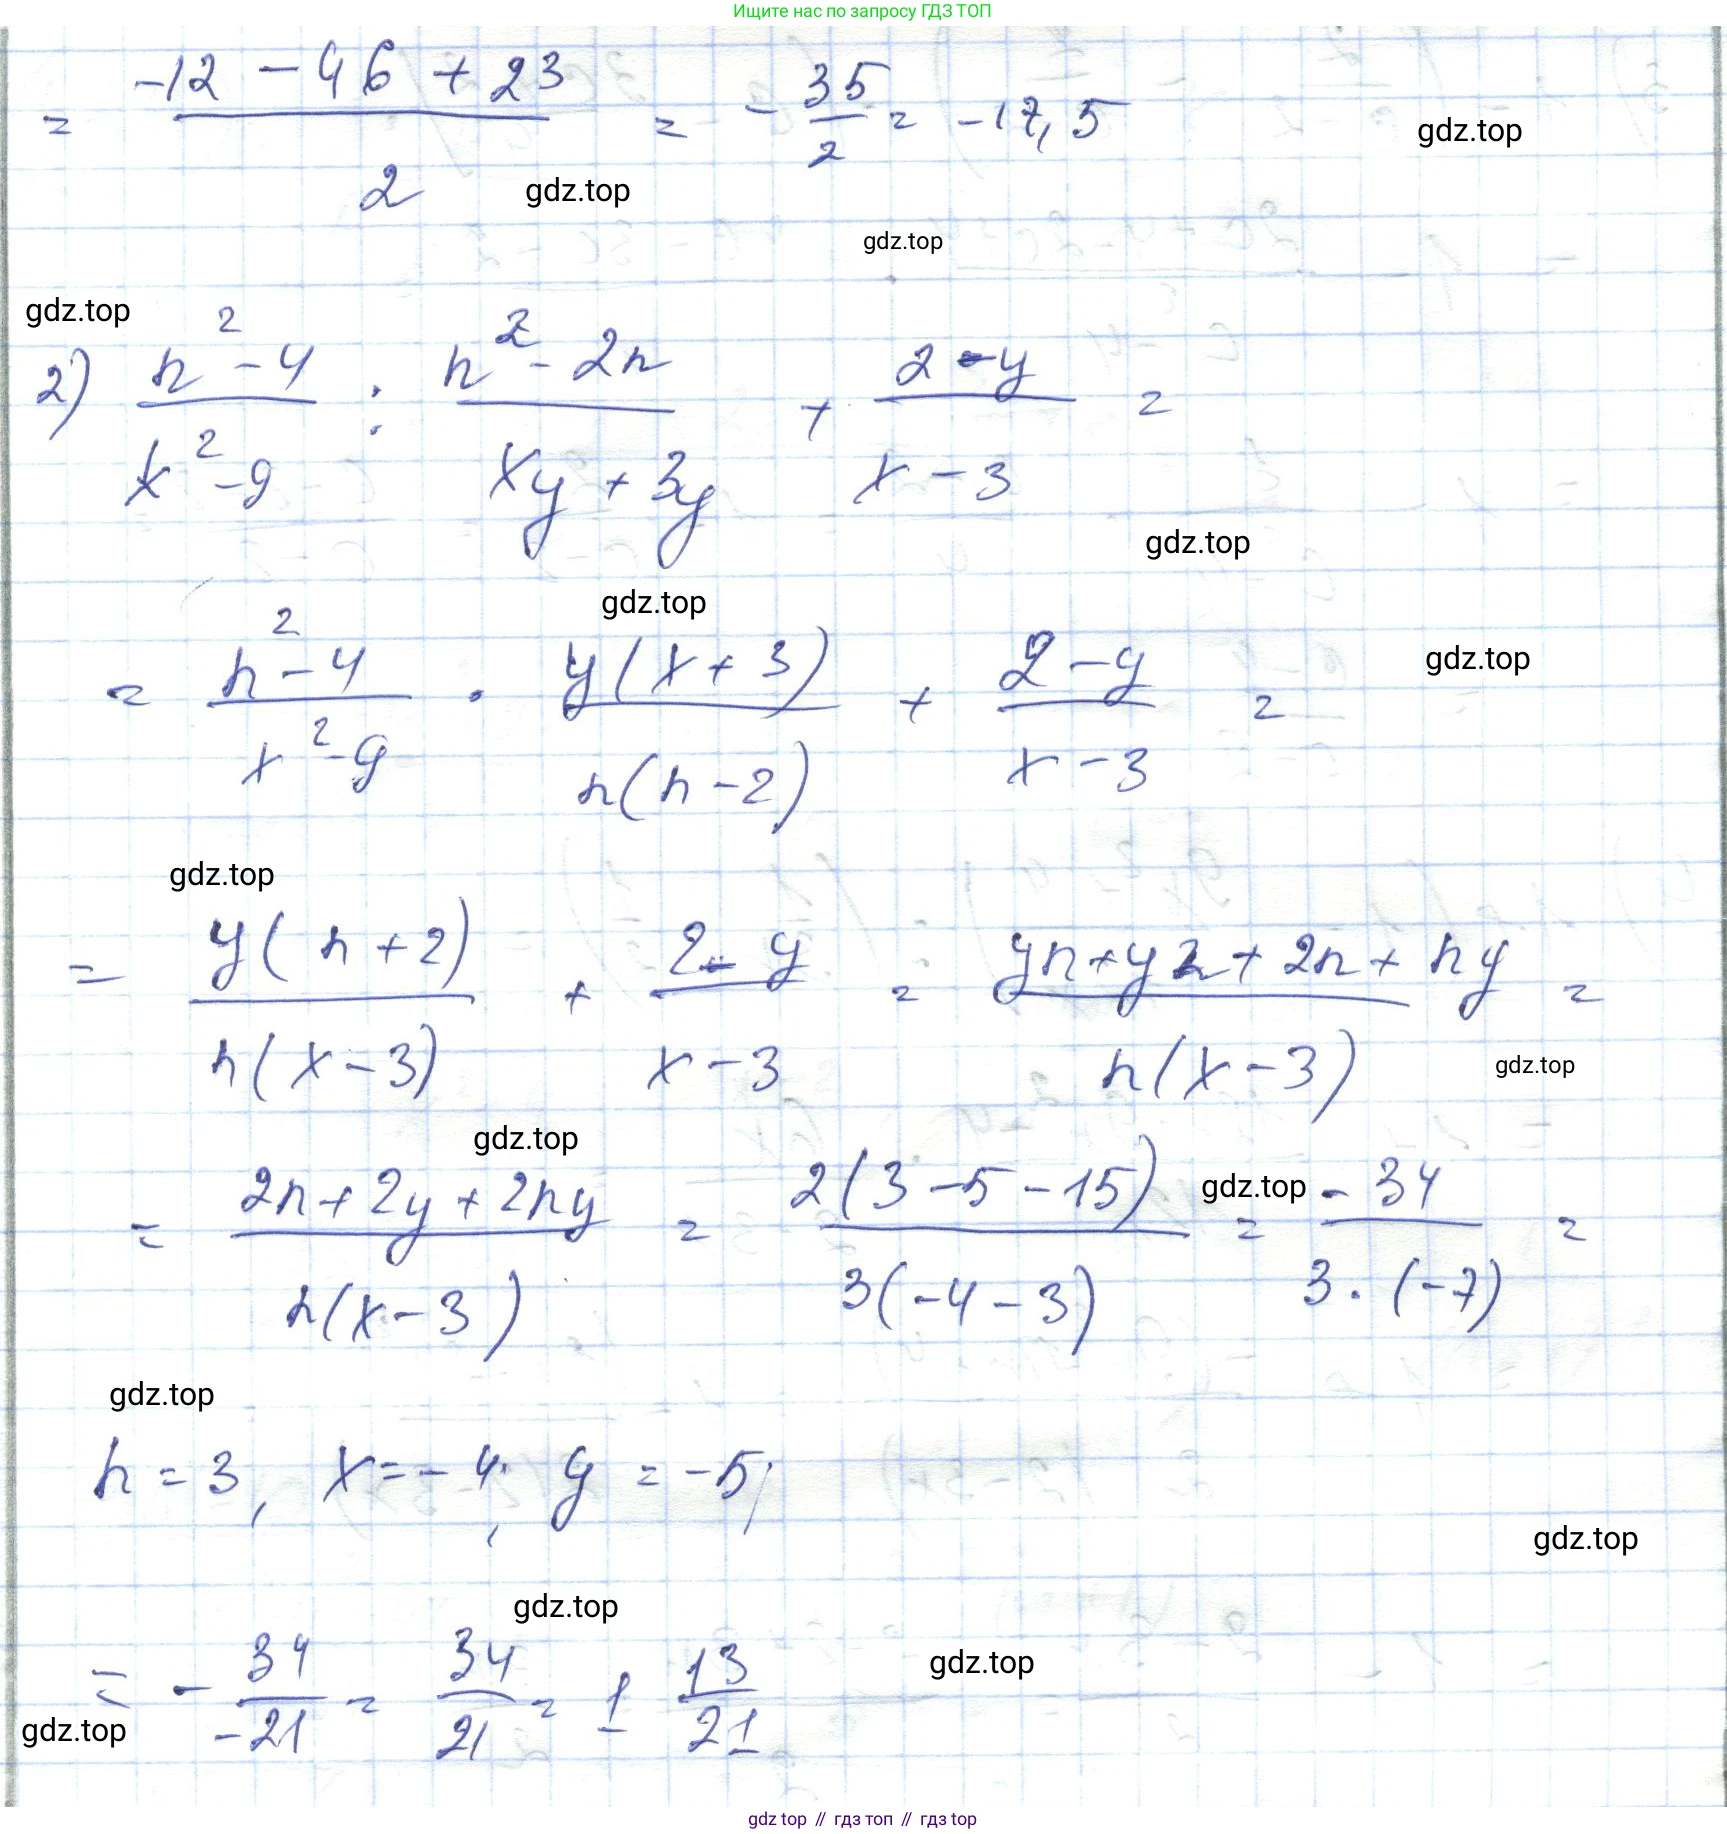 Ищите нас по запросу ГДЗ ТОП
= (-12 - 46 + 23)/2 = -35/2 = -17,5
gdz.top
gdz.top
gdz.top
gdz.top
2) (n² - 4)/(x² - 9) : (n² - 2n)/(xy + 3y) + (2 - y)/(x - 3) =
gdz.top
gdz.top
= (n² - 4)/(x² - 9) · y(x + 3)/(n(n - 2)) + (2 - y)/(x - 3) =
gdz.top
gdz.top
= y(n + 2)/(n(x - 3)) + (2 - y)/(x - 3) = (yn + y2 + 2n + ny)/(n(x - 3)) =
gdz.top
gdz.top
= (2n + 2y + 2ny)/(n(x - 3)) = 2(3 - 5 - 15)/(3(-4 - 3)) = -34/(3 · (-7)) =
gdz.top
gdz.top
n = 3, x = -4; y = -5;
gdz.top
gdz.top
= -34/-21 = 34/21 = 1 13/21
gdz.top
gdz.top
gdz top // гдз топ // гдз top